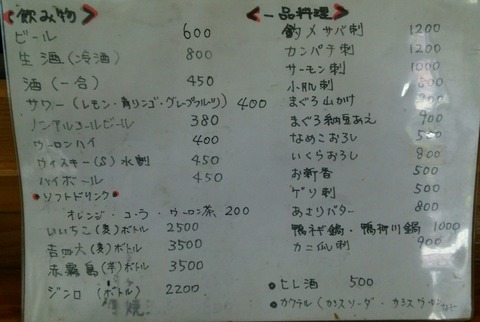 飲み物
ビール 600
生酒(冷酒) 800
酒(一合) 450
サワー(レモン・青リンゴ・グレープフルーツ) 400
ノンアルコールビール 380
ウーロンハイ 400
ウィスキー(S)水割 450
ハイボール 450
ソフトドリンク
オレンジ・コーラ・ウーロン茶 200
いいちこ(麦)ボトル 2500
吉四六(麦)ボトル 3500
赤霧島(芋)ボトル 3500
ジンロ(ボトル) 2200
一品料理
〆サバ刺 1200
カンパチ刺 1200
サーモン刺 1000
小肌刺
まぐろ山かけ
まぐろ納豆あえ 900
なめこおろし
いくらおろし 800
お新香 500
ゲソ刺 500
あさりバター 800
鴨ネギ鍋・鴨柳川鍋 1000
カニ爪刺 900
ヒレ酒 500
カクテル(カシスソーダ・カシス